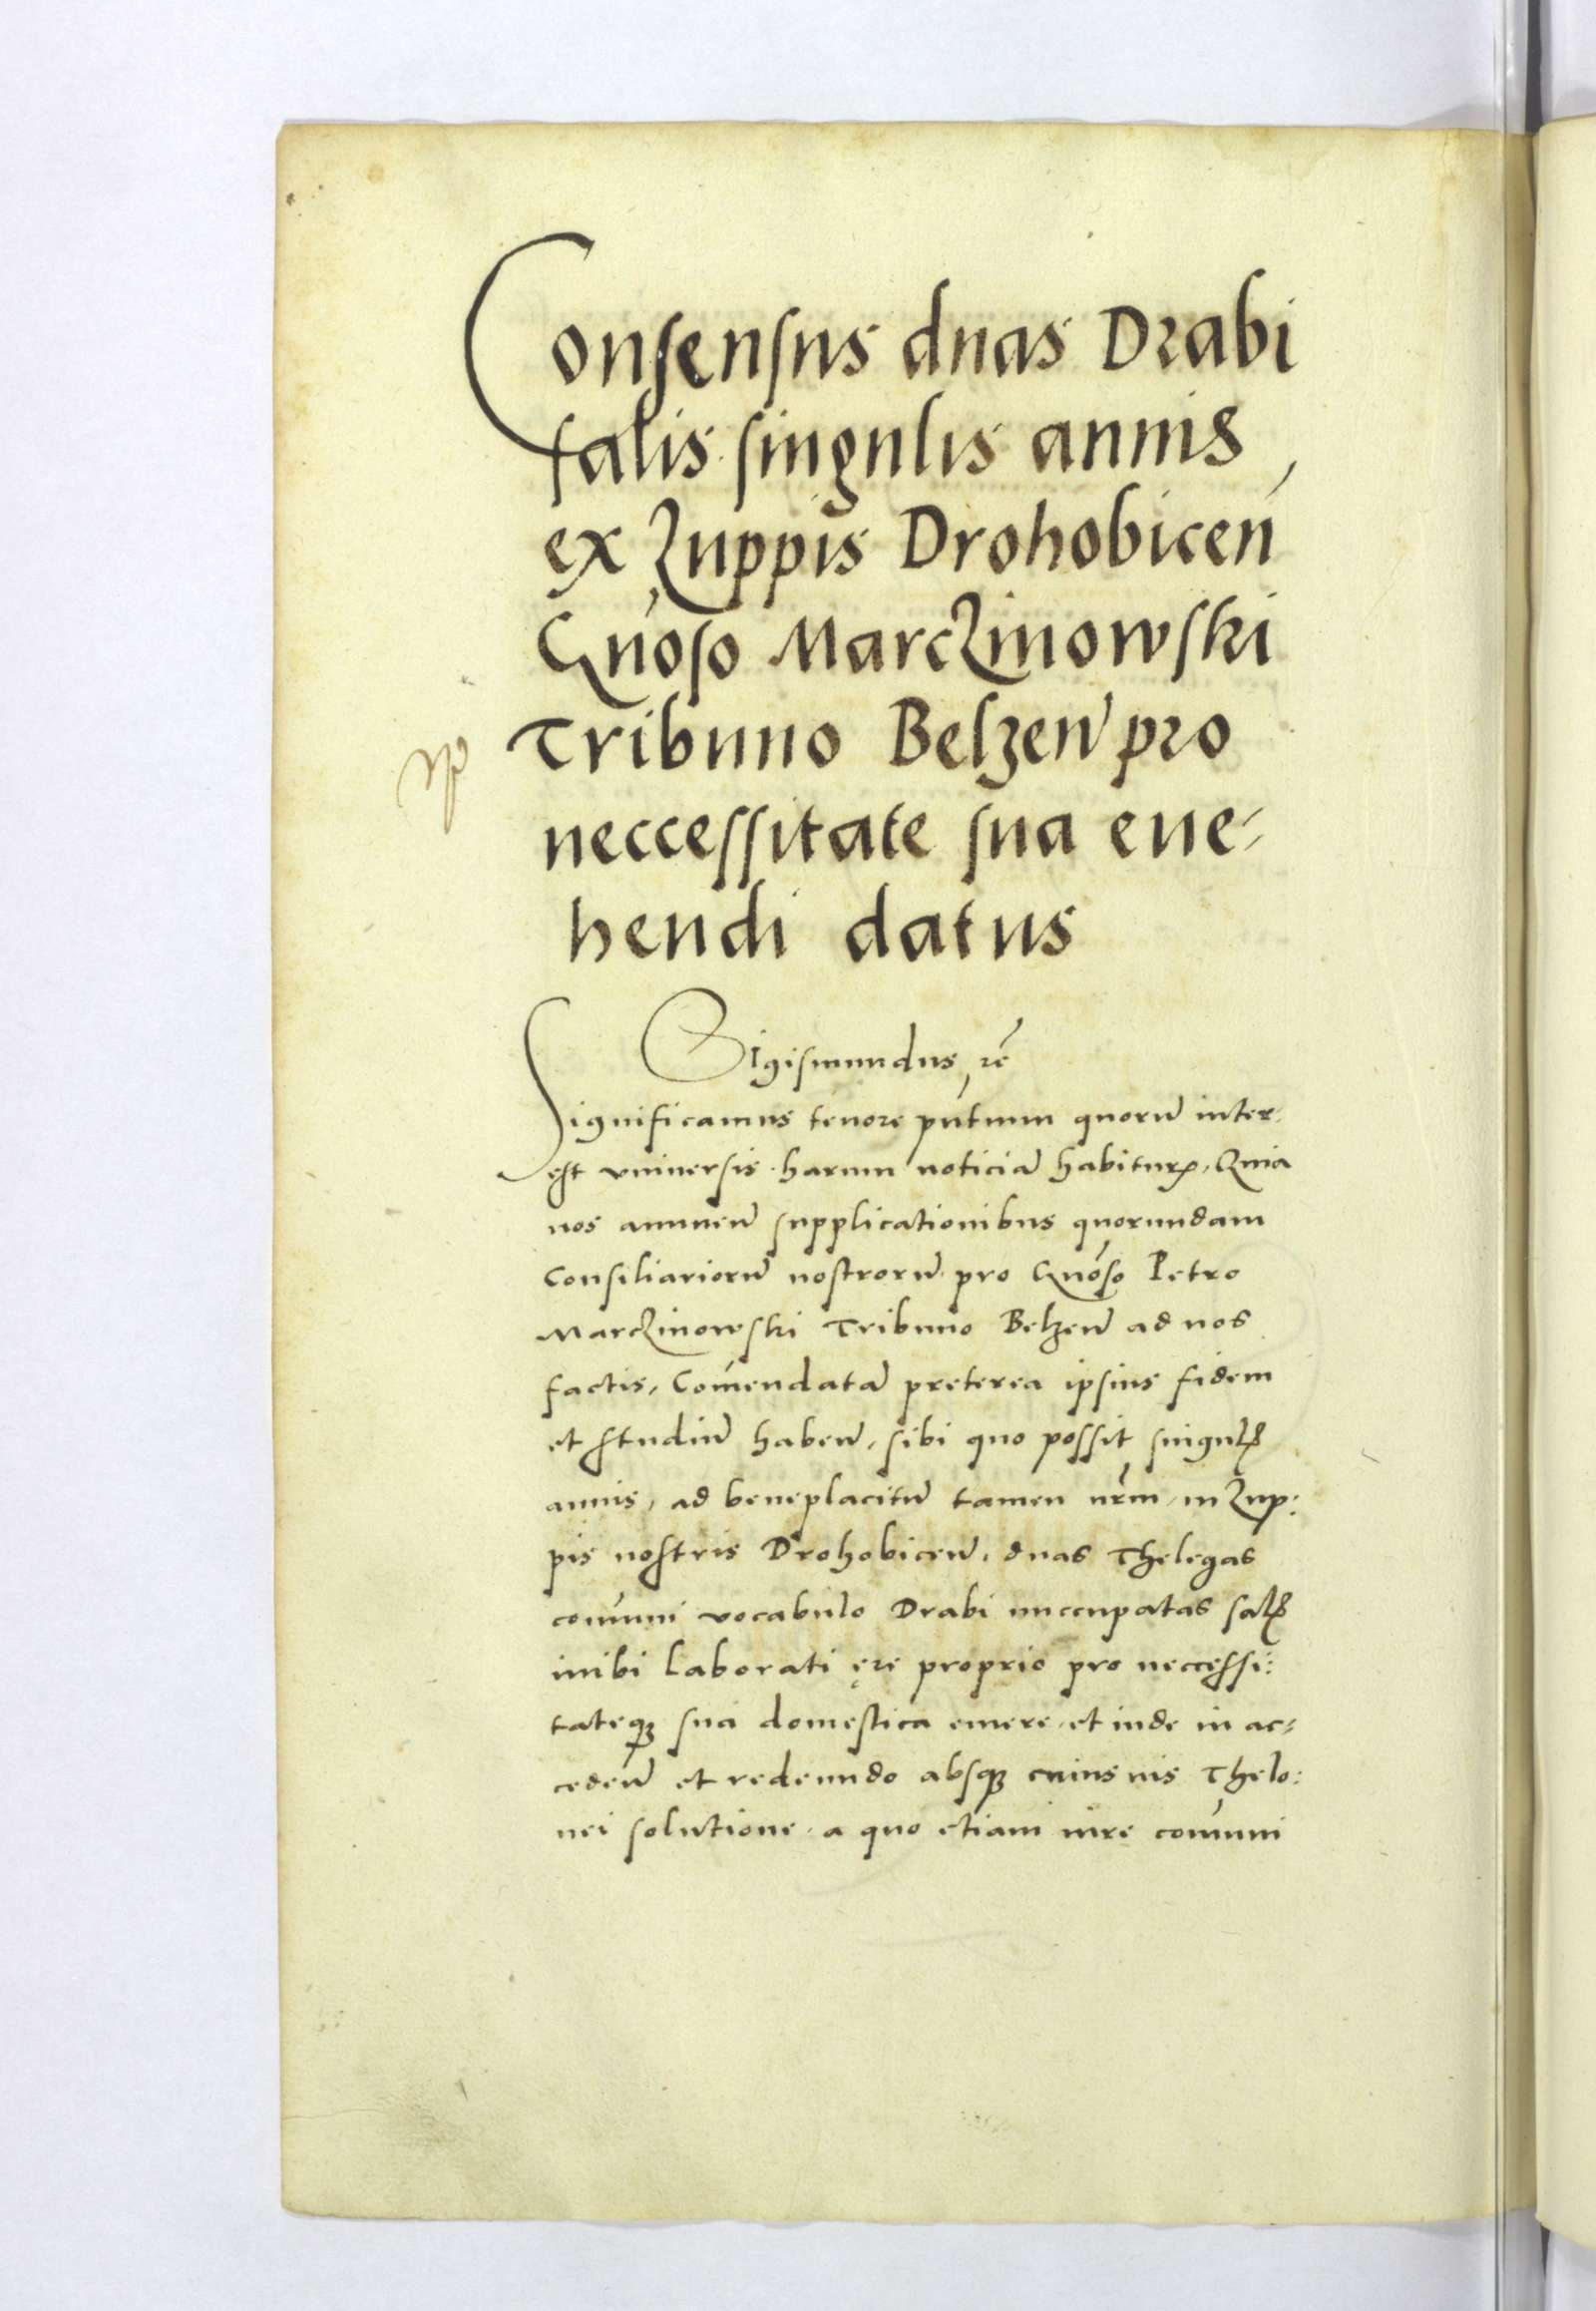 Consensus duas Drabi
salis singulis annis
ex Zuppis Drohobicen̄
Gn̄oso Marczinowski
Tribuno Belzen̄ pro
neccessitate sua eue-
hendi datus
Sigismundus rc̄
Significamus tenore pn̄tium quorū inter-
est vniversis harum noticiā habiturꝝ, Quia
nos annuen̄ supplicationibus quorundam
Consiliariorū nostrorū pro Gn̄oso Petro
Marczinowski Tribuno Belzen̄ ad nos
factis, Com̄endatā preterea ipsius fidem
et studiū haben̄, sibi quo possit singulꝭ
annis, ad beneplacitū tamen nr̄m, in Zup:
pis nostris Drohobicen̄, duas Thelegas
com̄uni vocabulo Drabi nuccupatas salꝭ
inibi laborati ęre proprio pro neccessi:
tateqꝫ sua domestica emere, et inde in ac-
ceden̄ et redeundo absqꝫ cuiusuis Thelo:
nei solutione, a quo etiam iure com̄uni